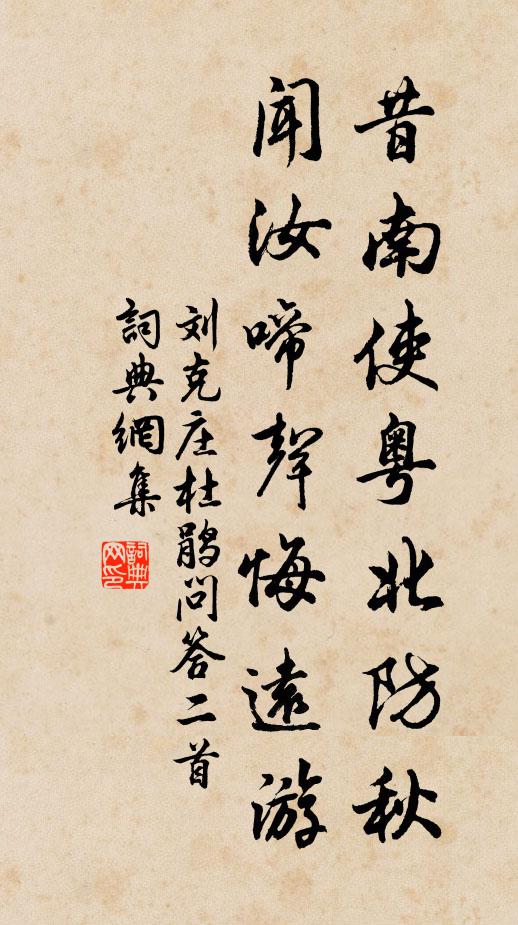 昔南使粤北防秋
闻汝啼聲悔遠游
刘克庄杜鹃问答二首
詞典網集
詞典网印